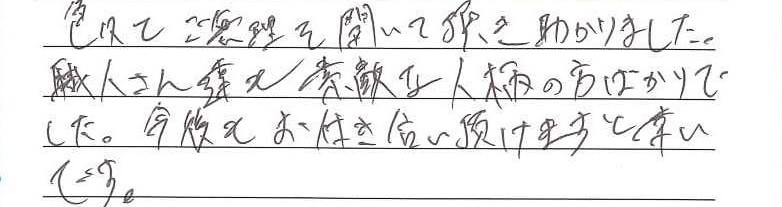 色々とご無理を聞いて頂き助かりました。
職人さん達も素敵な人柄の方ばかりで
した。今後もお付き合い頂けますと幸い
です。